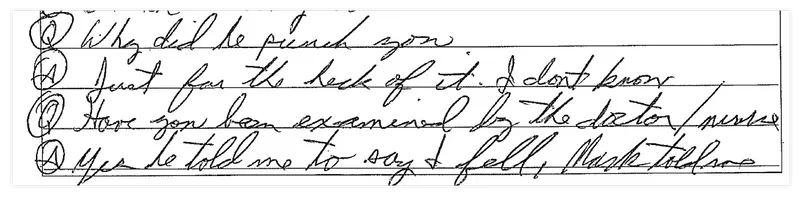 Q Why did he punch you
A Just for the heck of it. I dont know
Q Have you been examined by the doctor/nurse
A Yes he told me to say I fell, Mark told me